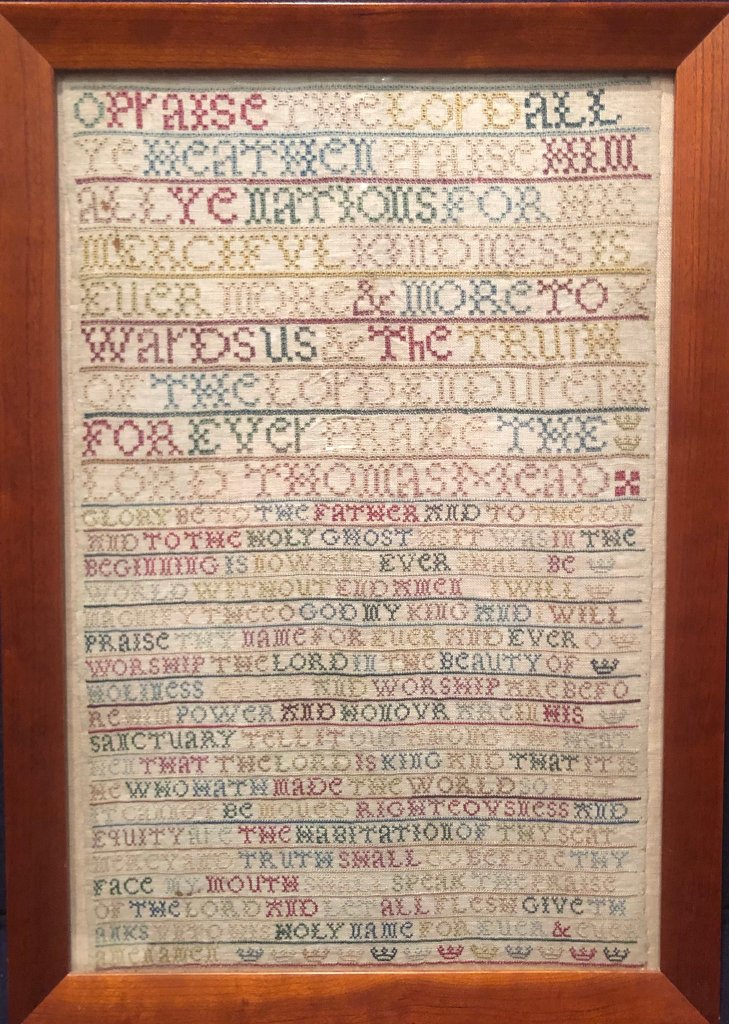 O Praise THE LOrD ALL
Ye HeATHeN Praise HIM
ALL Ye NATIONS FOR HIS
MERCIFVL KINDNESS IS
EUER MORE & MORE TO
WarDS US & The TRUTH
OF THE LORD ENDUreTH
FOR EVEr PRAISE THE
LORD THOMAS MEAD
GLORY BE TO THE FATHER AND TO THE SON
AND TO THE HOLY GHOST AS IT WAS IN THE
BEGINNING IS NOW AND EVER SHALL BE
WORLD WITHOUT END AMEN I WILL
MAGNIFY THEE O GOD MY KING AND I WILL
PRAISE THY NAME FOR EUER AND EVER O
WORSHIP THE LORD IN THE BEAUTY OF
HOLINESS GLORY AND WORSHIP ARE BEFO
RE HIM POWER AND HONOVR ARE IN HIS
SANCTUARY TELL IT OUT AMONG THE HEAT
HEN THAT THE LORD IS KING AND THAT IT IS
HE WHO HATH MADE THE WORLD SO
IT CANNOT BE MOUED RIGHTEOVSNESS AND
EQUITY ARE THE HABITATION OF THY SEAT
MERCY AND TRUTH SHALL GO BEFORE THY
FACE MY MOUTH SHALL SPEAK THE PRAISE
OF THE LORD AND LET ALL FLESH GIVE TH
ANKS HOLY NAME FOR EUER &
AMEN AMEN